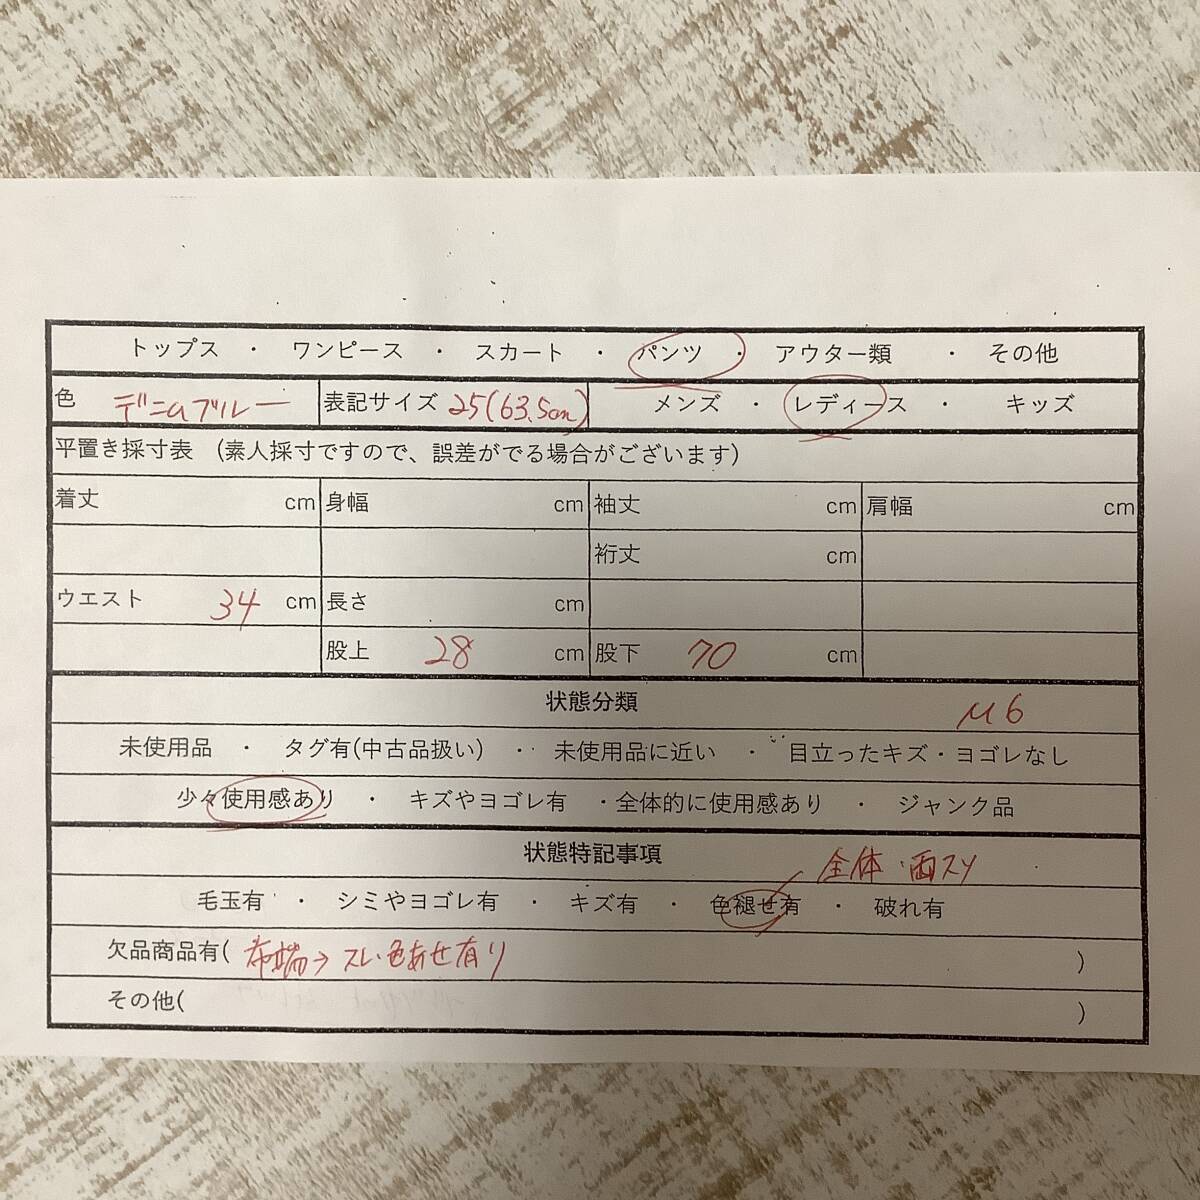 トップス ・ ワンピース ・ スカート ・ パンツ ・ アウター類 ・ その他
色 デニムブルー 表記サイズ 25(63.5cm) メンズ ・ レディース ・ キッズ
平置き採寸表 (素人採寸ですので、誤差がでる場合がございます)
着丈 cm 身幅 cm 袖丈 cm 肩幅 cm
裄丈 cm
ウエスト 34 cm 長さ cm
股上 28 cm 股下 70 cm
状態分類 M6
未使用品 ・ タグ有(中古品扱い) ・ 未使用品に近い ・ 目立ったキズ・ヨゴレなし
少々使用感あり ・ キズやヨゴレ有 ・全体的に使用感あり ・ ジャンク品
状態特記事項 全体・両スソ
毛玉有 ・ シミやヨゴレ有 ・ キズ有 ・ 色褪せ有 ・ 破れ有
欠品商品有( 布端→スレ・色あせ有り )
その他( )